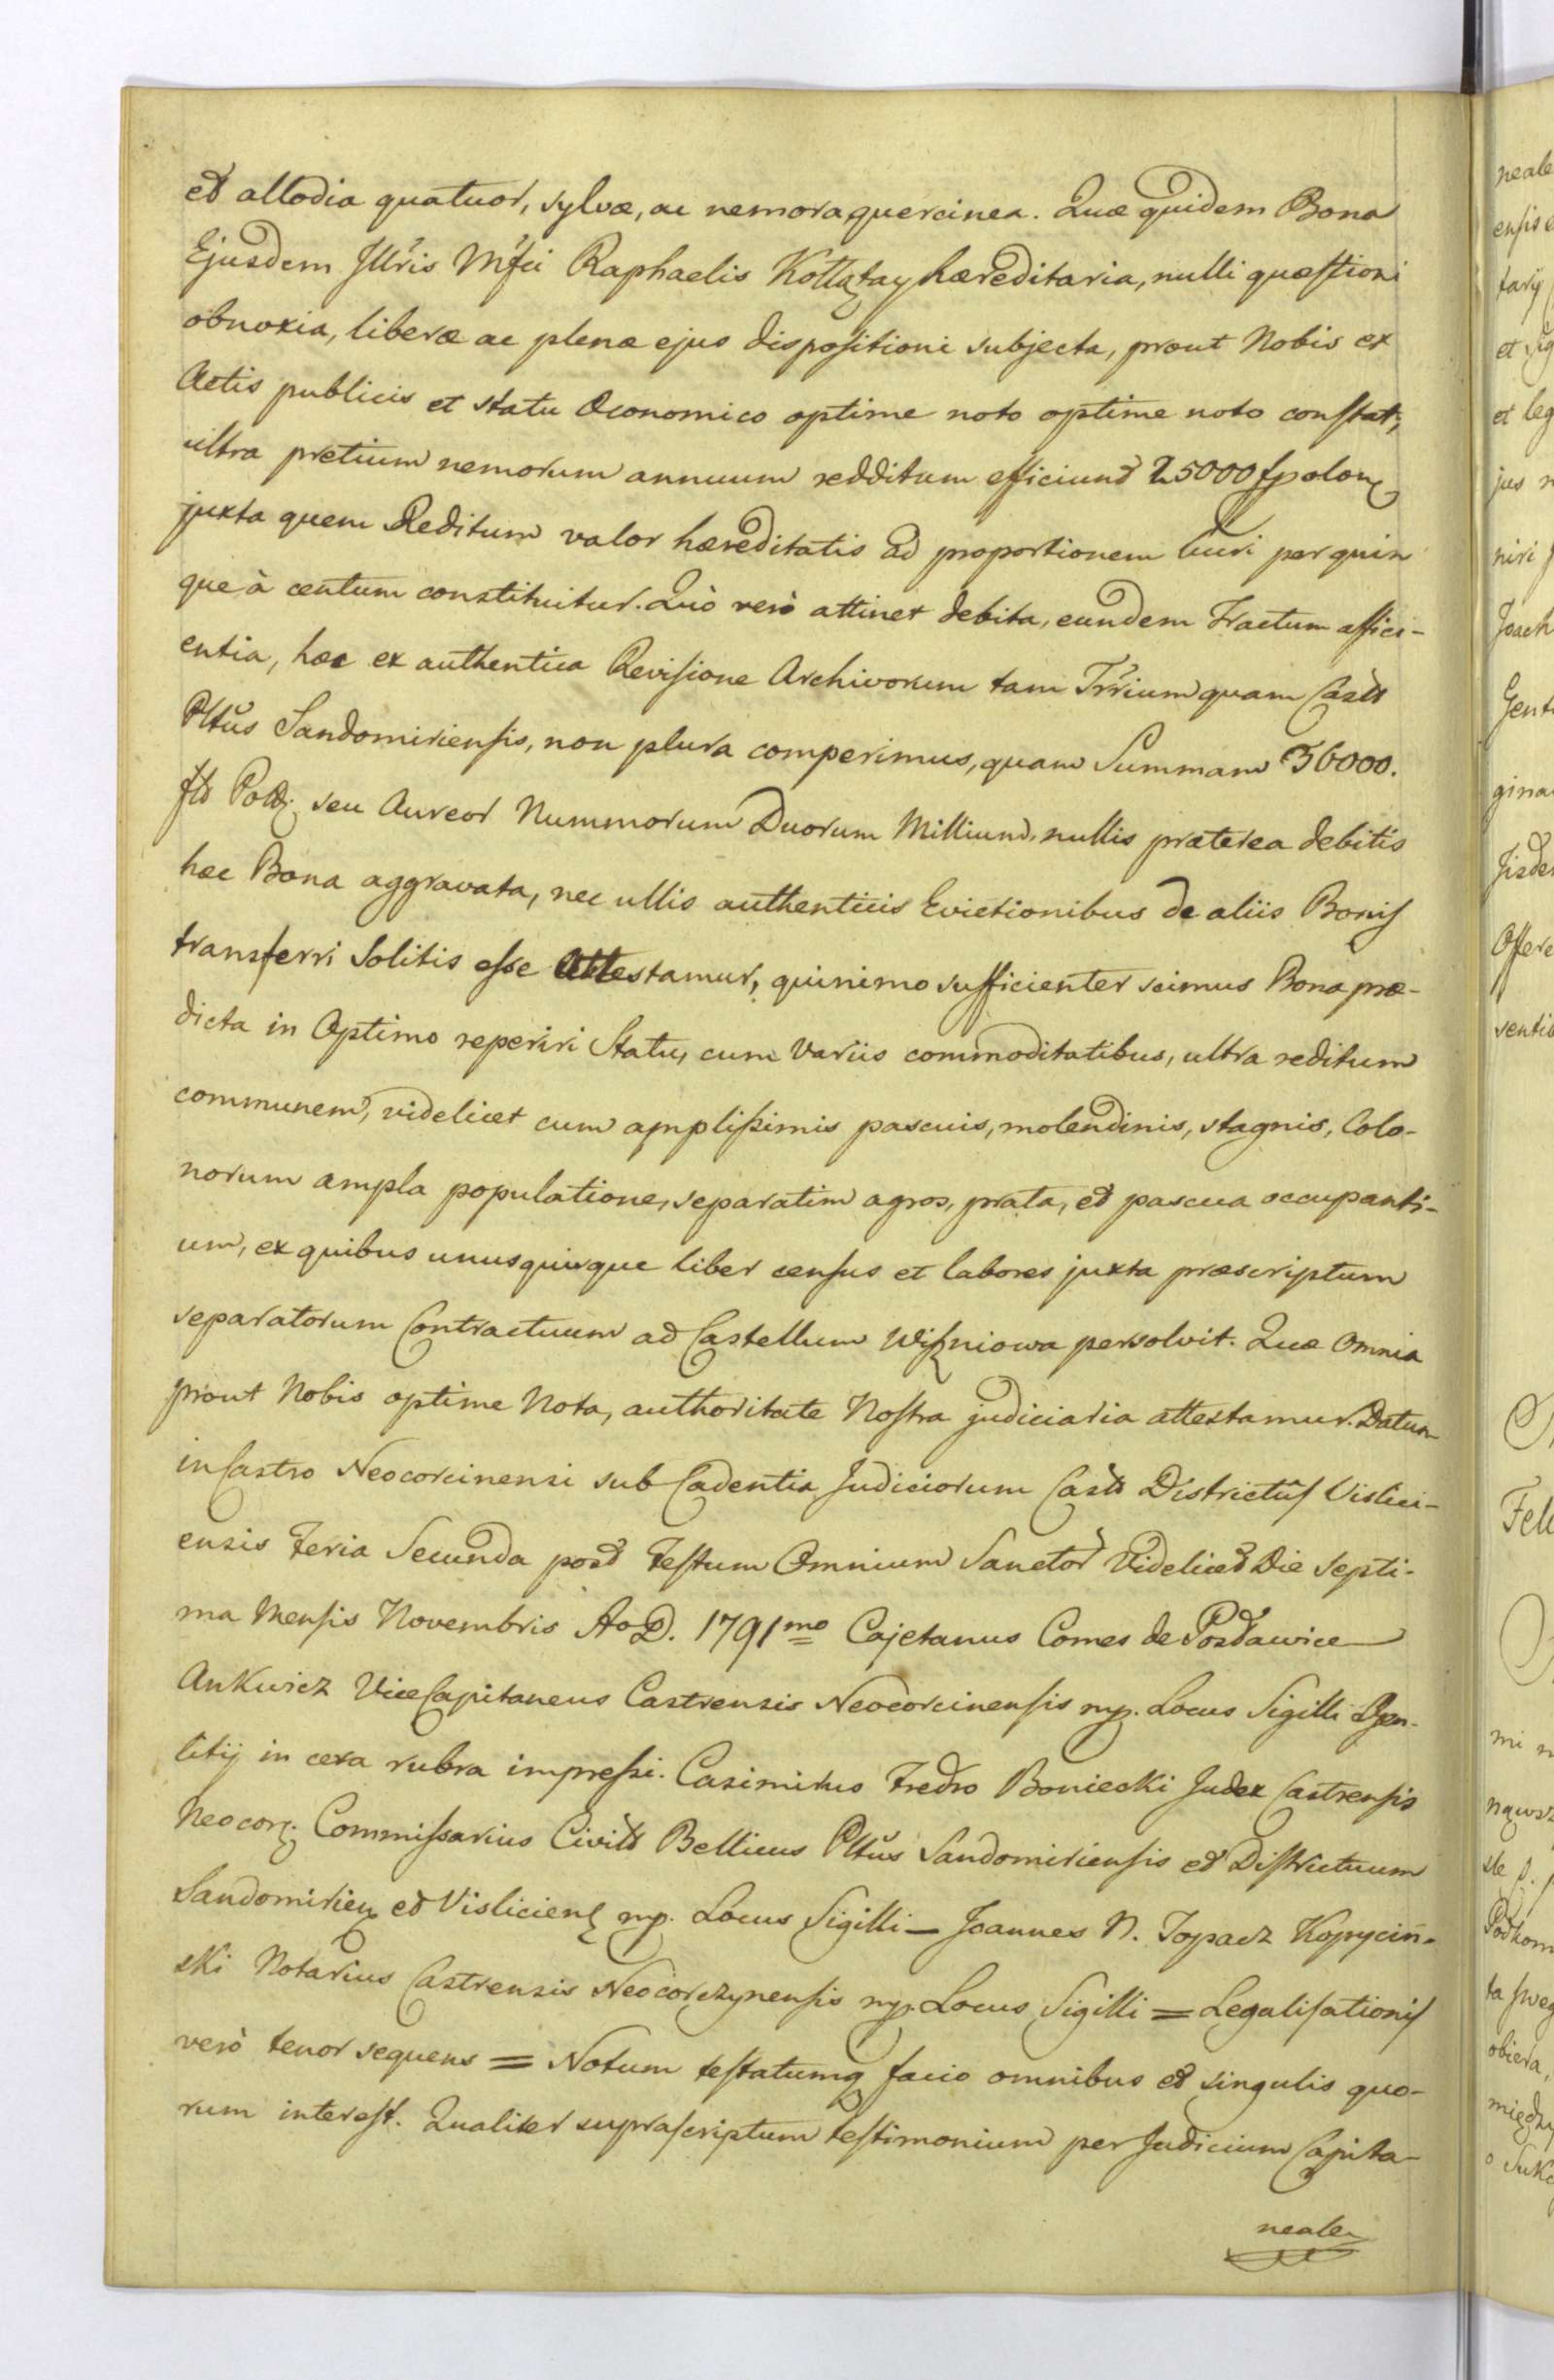 et allodia quatuor, sylvæ, ac nemora quercinea. Quæ quidem Bona
Ejusdem Jllris Mfci Raphaelis Kołłątay hæreditaria, nulli quæstioni
obnoxia, liberæ ac plenæ ejus dispositioni subjecta, prout Nobis ex
Actis publicis et statu Œconomico optime noto optime noto constat,
ultra pretium nemorum annuum redditum efficiunt 25000 fpolon
juxta quem Reditum valor hæreditatis ad proportionem lucri per quin
que à centum constituitur. Quò verò attinet debita, eundem Tractum affici-
entia, hæc ex authentica Revisione Archivorum tam Trrium quam Castr
Pltũs Sandomiriensis, non plura comperimus, quam Summam 36000.
flr Pol. seu Aureor Nummorum Duorum Millium, nullis præterea debitis
hæc Bona aggravata, nec ullis authenticis Evictionibus de aliis Bonis
transferri Solitis esse Attestamur, quinimo sufficienter scimus Bona præ-
dicta in Optimo reperiri Statu, cum Variis commoditatibus, ultra reditum
communem, videlicet cum amplissimis pascuis, molendinis, stagnis, Colo-
norum ampla populatione, separatim agros, prata, et pascua occupanti-
um, ex quibus unusquisque liber census et labores juxta præscriptum
separatorum Contractuum ad Castellum Wiszniowa persolvit. Quæ Omnia
prout Nobis optime Nota, authoritate Nostra judiciaria attestamur. Datum
in Castro Neocorcinensi sub Cadentia Judiciorum Castr Districtûs Vislici-
ensis Feria Secunda post Festum Omnium Sanctor Videlicet Die Septi-
ma Mensis Novembris Ao D. 1791mo Cajetanus Comes de Posławice
Ankwicz ViceCapitaneus Castrensis Neocorcinensis mp. Locus Sigilli Gen-
titij in cera rubra impressi. Casimirus Fredro Boniecki Judex Castrensis
Neocor. Commissarius Civili Bellicus Pltũs Sandomiriensis et Districtuum
Sandomirien et Vislicien mp. Locus Sigilli – Joannes N. Topacz Kopyciń-
ski Notarius Castrensis Neocorczynensis mp. Locus Sigilli = Legalisationis
verò tenor sequens = Notum testatumq facio omnibus et singulis quo-
rum interest. Qualiter suprascriptum testimonium per Judicium Capita-
neale